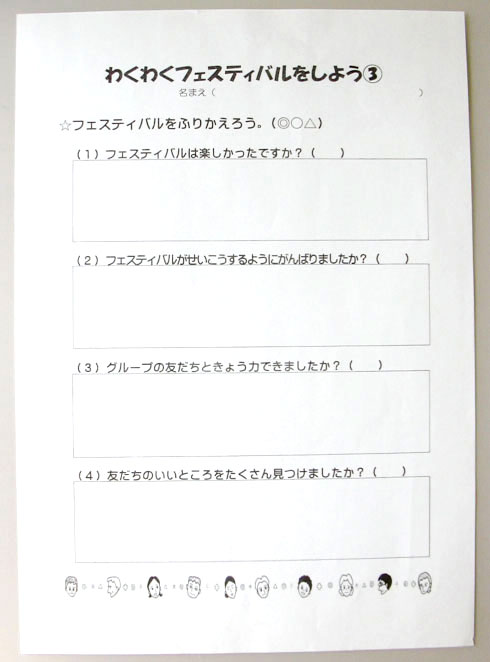 わくわくフェスティバルをしよう③
名まえ（　　　　　　　　　　）
☆フェスティバルをふりかえろう。（◎○△）
（１）フェスティバルは楽しかったですか？（　　）
（２）フェスティバルがせいこうするようにがんばりましたか？（　　）
（３）グループの友だちときょう力できましたか？（　　）
（４）友だちのいいところをたくさん見つけましたか？（　　）